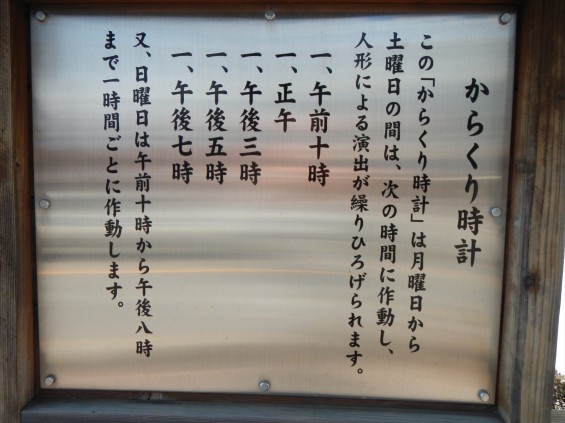 からくり時計
この「からくり時計」は月曜日から
土曜日の間は、次の時間に作動し、
人形による演出が繰りひろげられます。
一、午前十時
一、正午
一、午後三時
一、午後五時
一、午後七時
又、日曜日は午前十時から午後八時
まで一時間ごとに作動します。